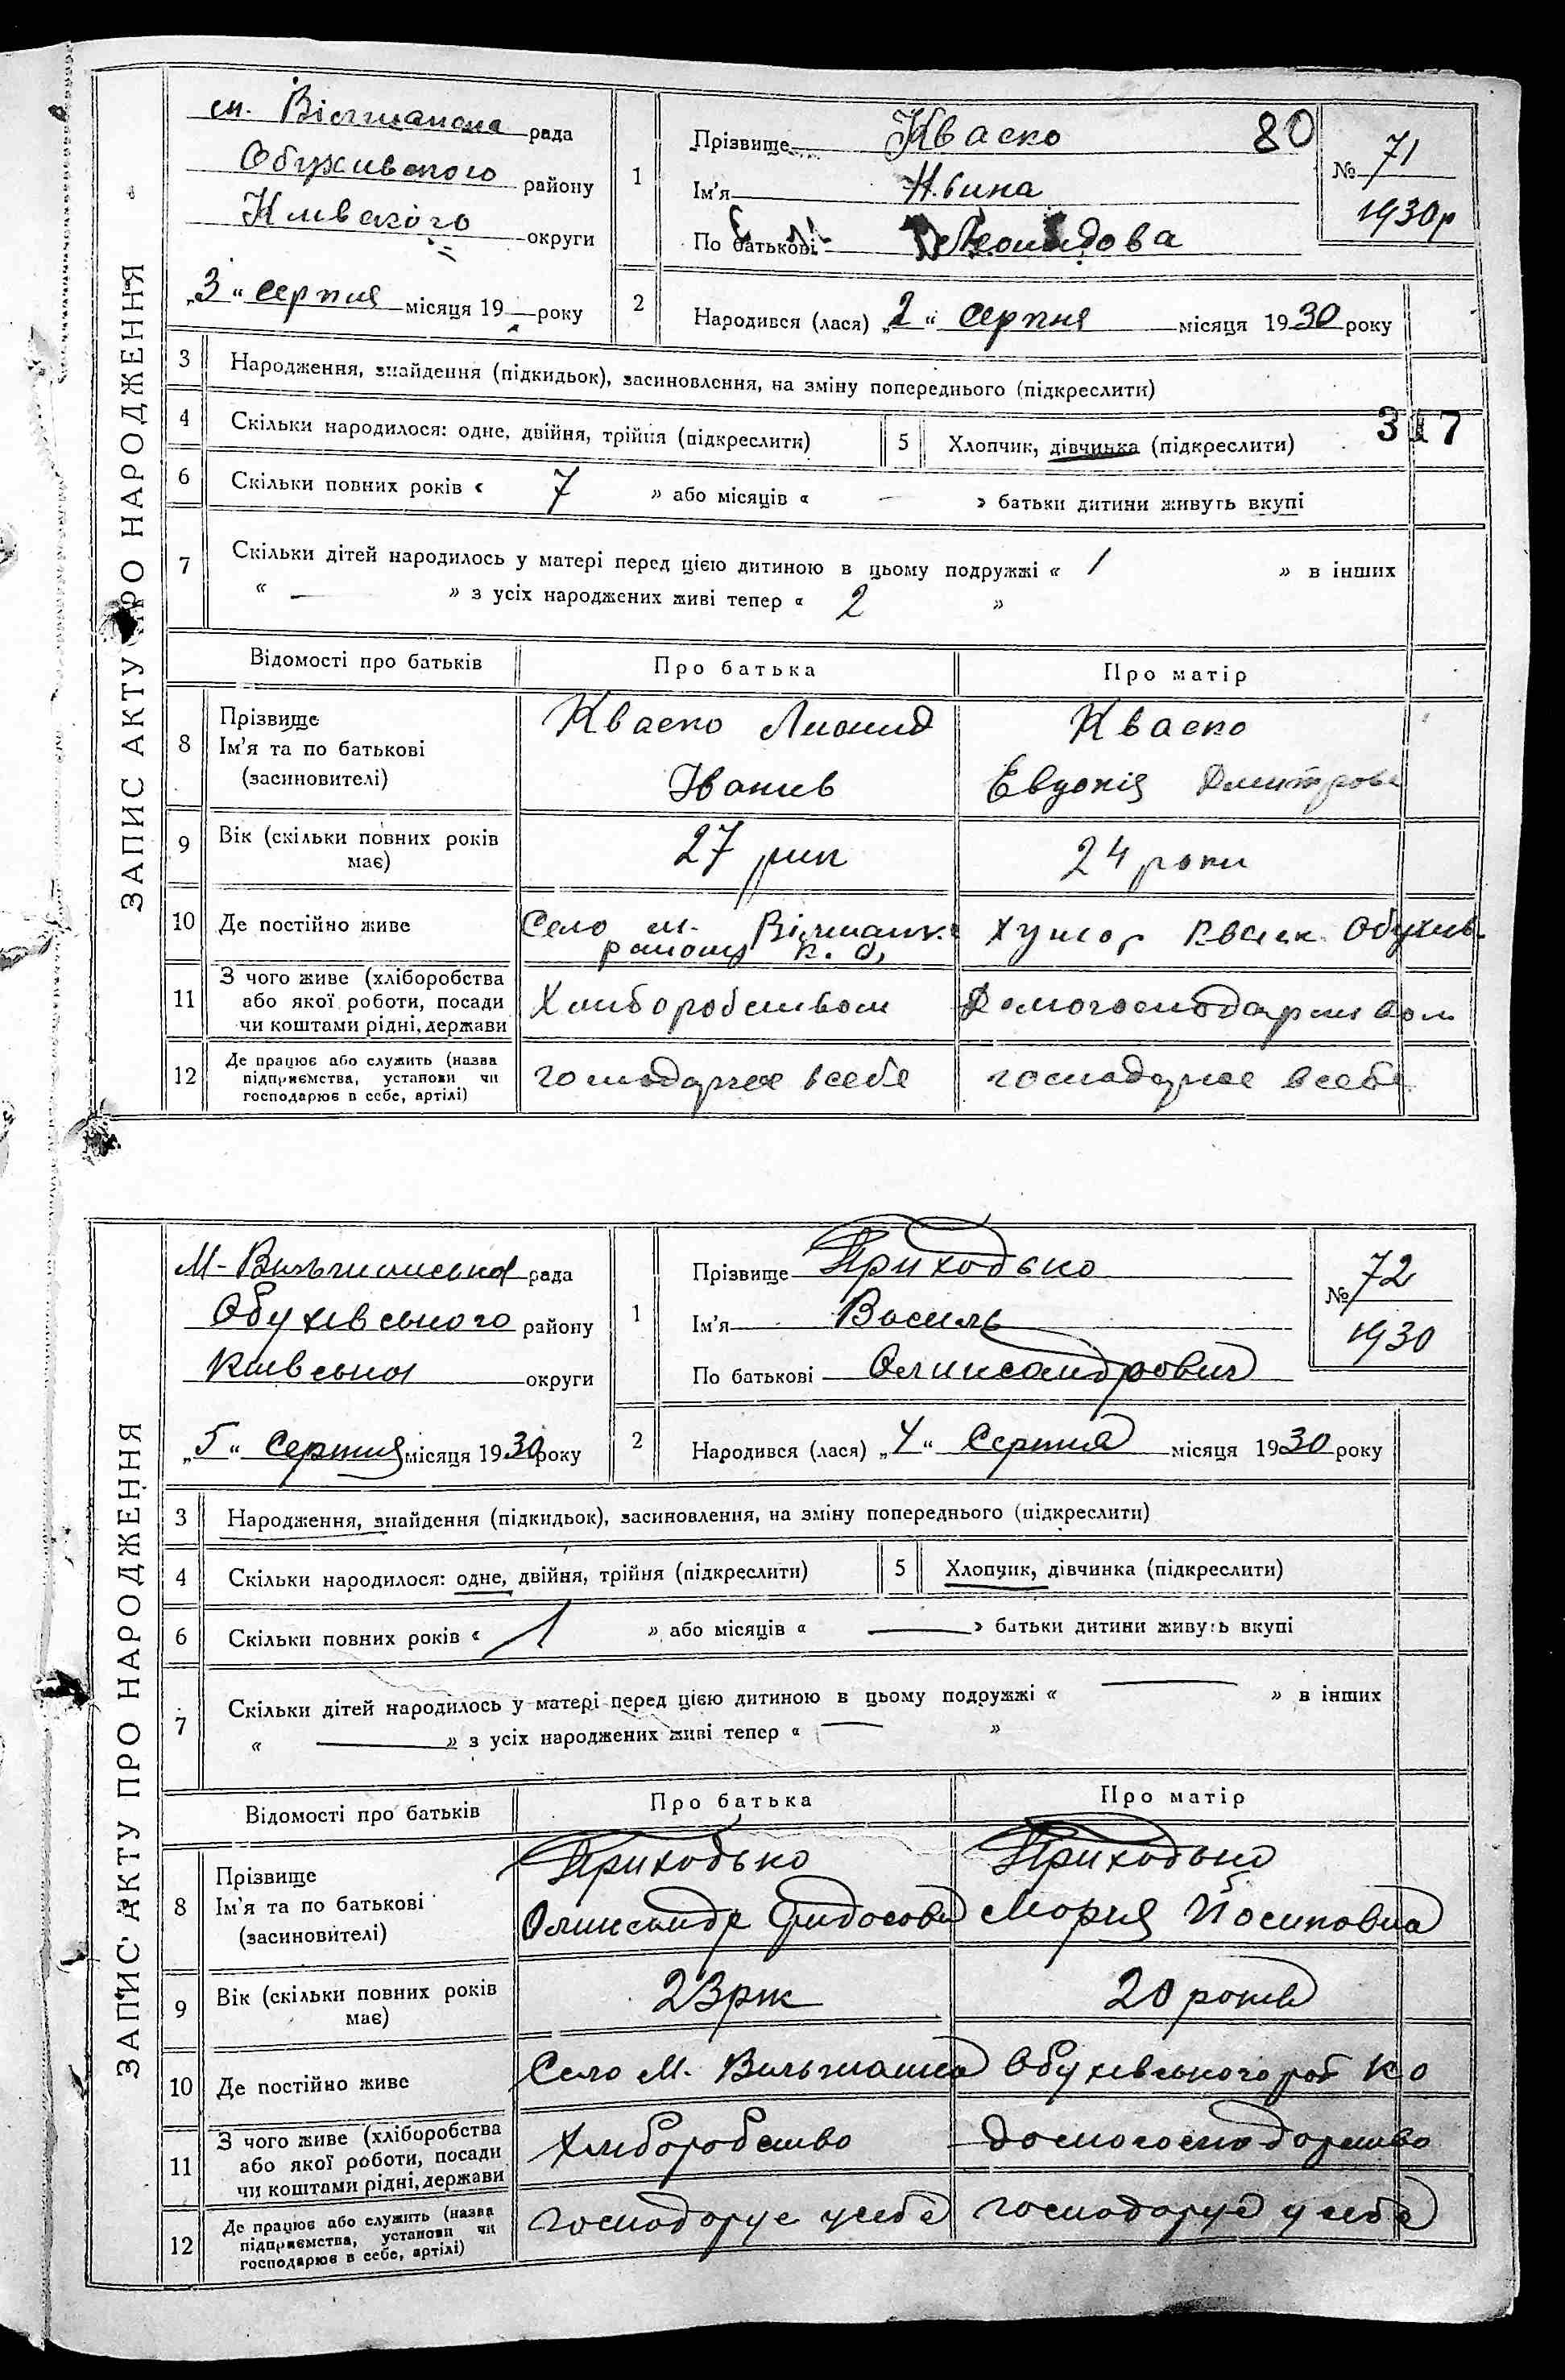 ЗАПИС АКТУ ПРО НАРОДЖЕННЯ
м. Вільшанска рада
Обухивского району
Кивского округи
„3“ серпня місяця 19 року
1
Прізвище Кваско
80
Ім'я
По батькові Леонидова
№ 71
1930р
2
Народився (лася) „2“ серпня місяця 1930 року
3 Народження, знайдення (підкидьок), засиновлення, на зміну попереднього (підкреслити)
4 Скільки народилося: одне, двійня, трійня (підкреслити)
5 Хлопчик, дівчинка (підкреслити)
317
6 Скільки повних років « 7 » або місяців « — » батьки дитини живуть вкупі
7 Скільки дітей народилось у матері перед цією дитиною в цьому подружжі « 1 » в інших
« — » з усіх народжених живі тепер « 2 »
Відомості про батьків Про батька Про матір
8 Прізвище
Ім'я та по батькові
(засиновителі)
Кваско Лионид
Іванив
Кваско
Евдокія Дмитрова
9 Вік (скільки повних років має)
27 рик
24 роки
10 Де постійно живе
Село м. Вільшанк.
району К. О,
Хутор Кваск. Обухив.
11 З чого живе (хліборобства
або якої роботи, посади
чи коштами рідні, держави
Хлиборобством
Домогосподарством
12 Де працює або служить (назва
підприємства, установи чи
господарює в себе, артілі)
господарює всебе
господарює всебе
ЗАПИС АКТУ ПРО НАРОДЖЕННЯ
М-Вильшанська рада
Обухівського району
Київська округи
„5“ Серпня місяця 1930 року
1
Прізвище Приходько
Ім'я Василь
По батькові Оликсандрович
№ 72
1930
2
Народився (лася) „4“ Серпня місяця 1930 року
3 Народження, знайдення (підкидьок), засиновлення, на зміну попереднього (підкреслити)
4 Скільки народилося: одне, двійня, трійня (підкреслити)
5 Хлопчик, дівчинка (підкреслити)
6 Скільки повних років « 1 » або місяців « — » батьки дитини живуть вкупі
7 Скільки дітей народилось у матері перед цією дитиною в цьому подружжі « — » в інших
« — » з усіх народжених живі тепер « — »
Відомості про батьків Про батька Про матір
8 Прізвище
Ім'я та по батькові
(засиновителі)
Приходько
Оликсандр
Приходько
Мария Йосиповна
9 Вік (скільки повних років має)
23рік
20 років
10 Де постійно живе
Село М. Вильшанка
Обухівського рай К О
11 З чого живе (хліборобства
або якої роботи, посади
чи коштами рідні, держави
Хлиборобство
домогосподарство
12 Де працює або служить (назва
підприємства, установи чи
господарює в себе, артілі)
господарує усебе
господарує у себе